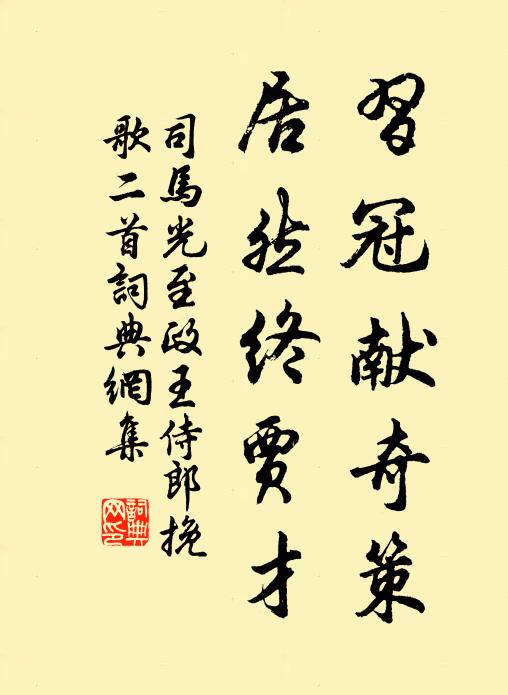 習冠献奇策
居然終賈才
司馬光至政王侍郎挽
歌二首詞典網集
詞典
网印